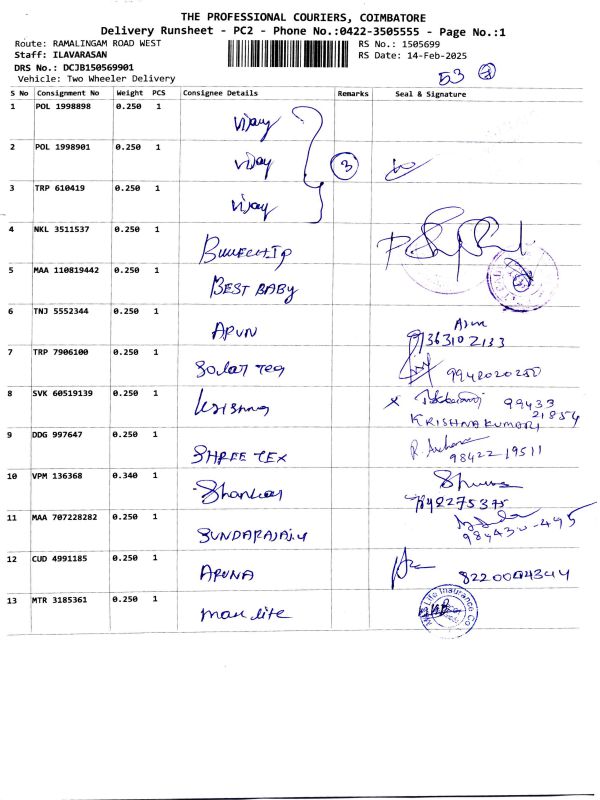 THE PROFESSIONAL COURIERS, COIMBATORE
Delivery Runsheet - PC2 - Phone No.:0422-3505555 - Page No.:1
Route: RAMALINGAM ROAD WEST RS No.: 1505699
Staff: ILAVARASAN RS Date: 14-Feb-2025
DRS No.: DCJB150569901
Vehicle: Two Wheeler Delivery 53
S No Consignment No Weight PCS Consignee Details Remarks Seal & Signature
1 POL 1998898 0.250 1 Vijay
2 POL 1998901 0.250 1 Vijay 3
3 TRP 610419 0.250 1 Vijay
4 NKL 3511537 0.250 1
5 MAA 110819442 0.250 1 BEST BABY
6 TNJ 5552344 0.250 1 ARUN
7 TRP 7906100 0.250 1 Solar 9948020250
8 SVK 60519139 0.250 1 Krishna 99433
KRISHNAKUMARI 21854
9 DDG 997647 0.250 1 SHREE TEX R. Archana
98422 19511
10 VPM 136368 0.340 1 Shankar
11 MAA 707228282 0.250 1
12 CUD 4991185 0.250 1 ARUNA
13 MTR 3185361 0.250 1 max lite Life Insurance Co